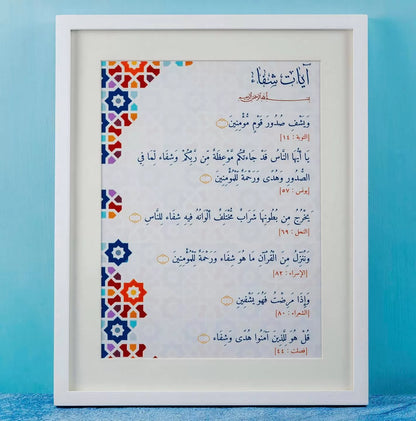 آيات شفاء
بسم الله الرحمن الرحيم
وَيَشْفِ صُدُورَ قَوْمٍ مُّؤْمِنِينَ
[التوبة : ١٤]
يَا أَيُّهَا النَّاسُ قَدْ جَاءَتْكُم مَّوْعِظَةٌ مِّن رَّبِّكُمْ وَشِفَاء لِّمَا فِي
الصُّدُورِ وَهُدًى وَرَحْمَةٌ لِّلْمُؤْمِنِينَ
[يونس : ٥٧]
يَخْرُجُ مِن بُطُونِهَا شَرَابٌ مُّخْتَلِفٌ أَلْوَانُهُ فِيهِ شِفَاء لِلنَّاسِ
[النحل : ٦٩]
وَنُنَزِّلُ مِنَ الْقُرْآنِ مَا هُوَ شِفَاء وَرَحْمَةٌ لِّلْمُؤْمِنِينَ
[الإسراء : ٨٢]
وَإِذَا مَرِضْتُ فَهُوَ يَشْفِينِ
[الشعراء : ٨٠]
قُلْ هُوَ لِلَّذِينَ آمَنُوا هُدًى وَشِفَاء
[فصلت : ٤٤]